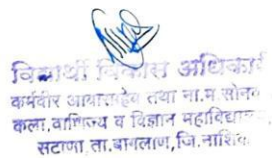 विद्यार्थी विकास अधिकारी
कर्मवीर आबासाहेब तथा ना.म. सोनव
कला, वाणिज्य व विज्ञान महाविद्याल
सटाणा ता.बागलाण, जि.नाशिक